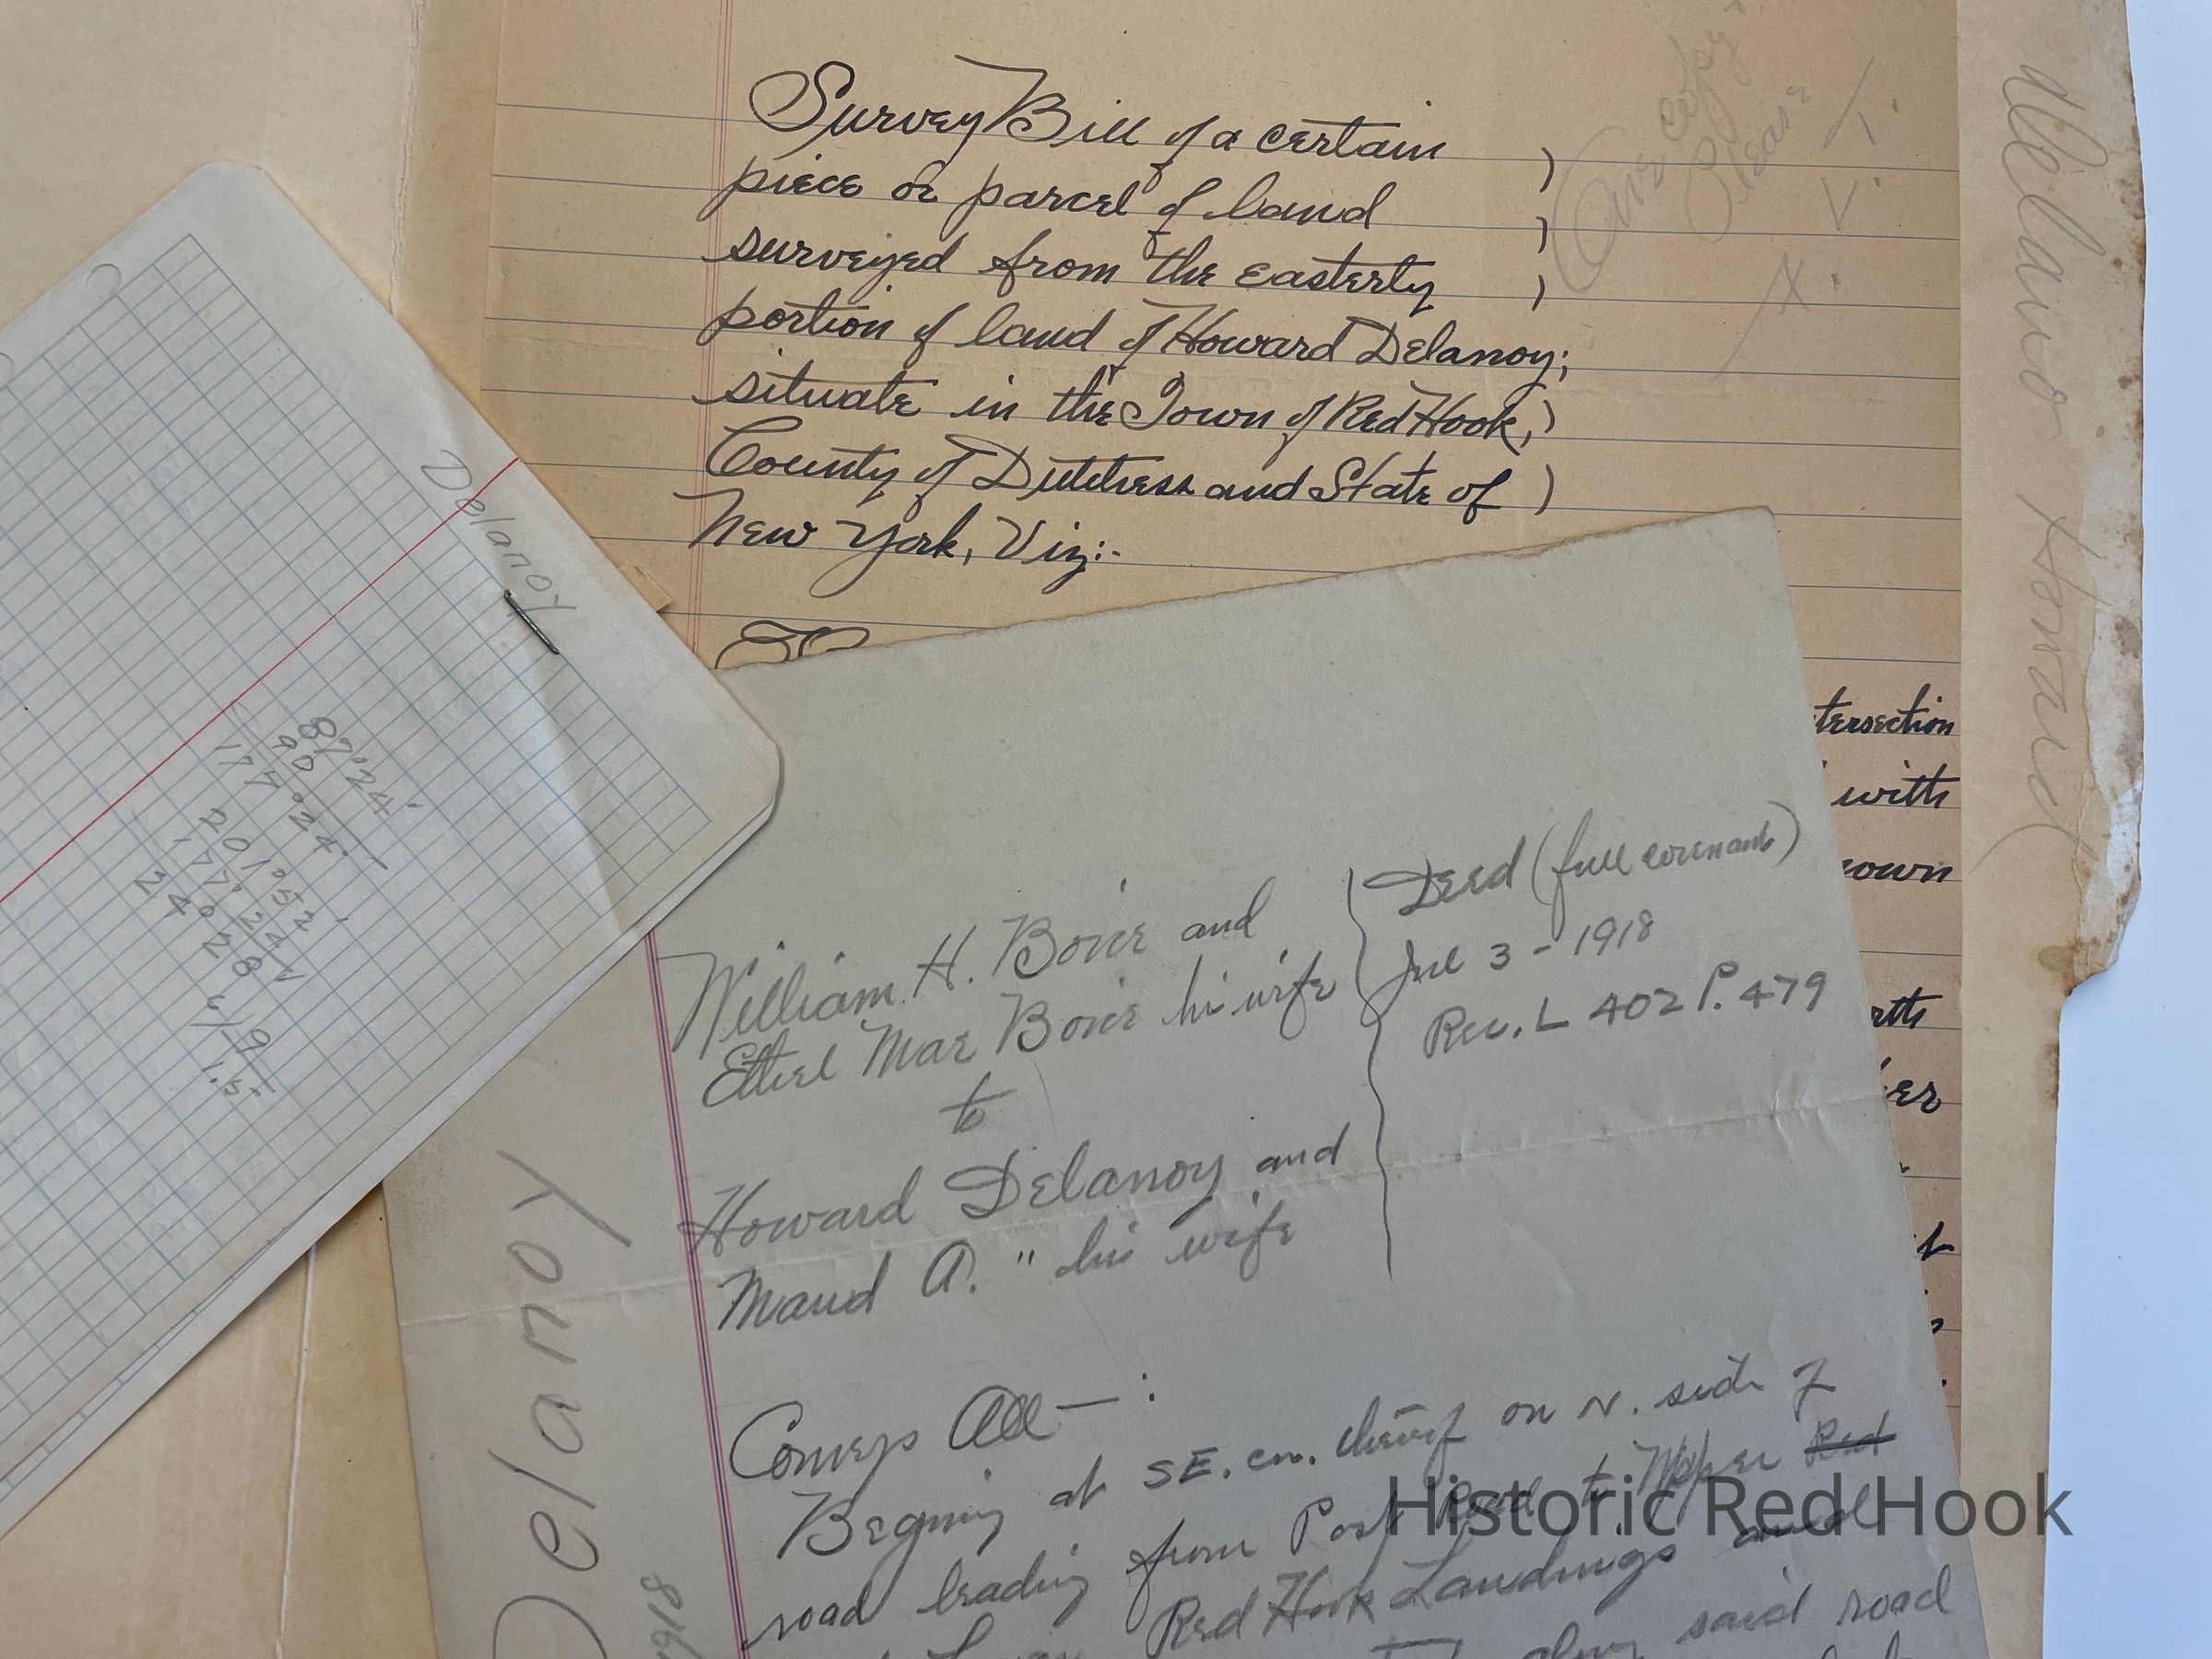 Survey Bill of a certain )
piece or parcel of land )
surveyed from the easterly )
portion of land of Howard Delanoy;
situate in the Town of Red Hook, )
County of Dutchess and State of )
New York, Viz:-
One copy
Please
Delanoy Howard
tersection
with
own
rth
er
Delanoy
87°24'
90°24'
177
201°52'
177°24'
24°28'
William H. Borie and
Ethel Mae Borie his wife
to
Howard Delanoy and
Maud A. " his wife
Deed (full covenant)
Jul 3 - 1918
Rec. L 402 P. 479
Conveys All — :
Begining at SE. cn. thereof on N. side of
road leading from Post Road to Upper Red
Red Hook Landings and
along said road
Delanoy
1918
Historic Red Hook